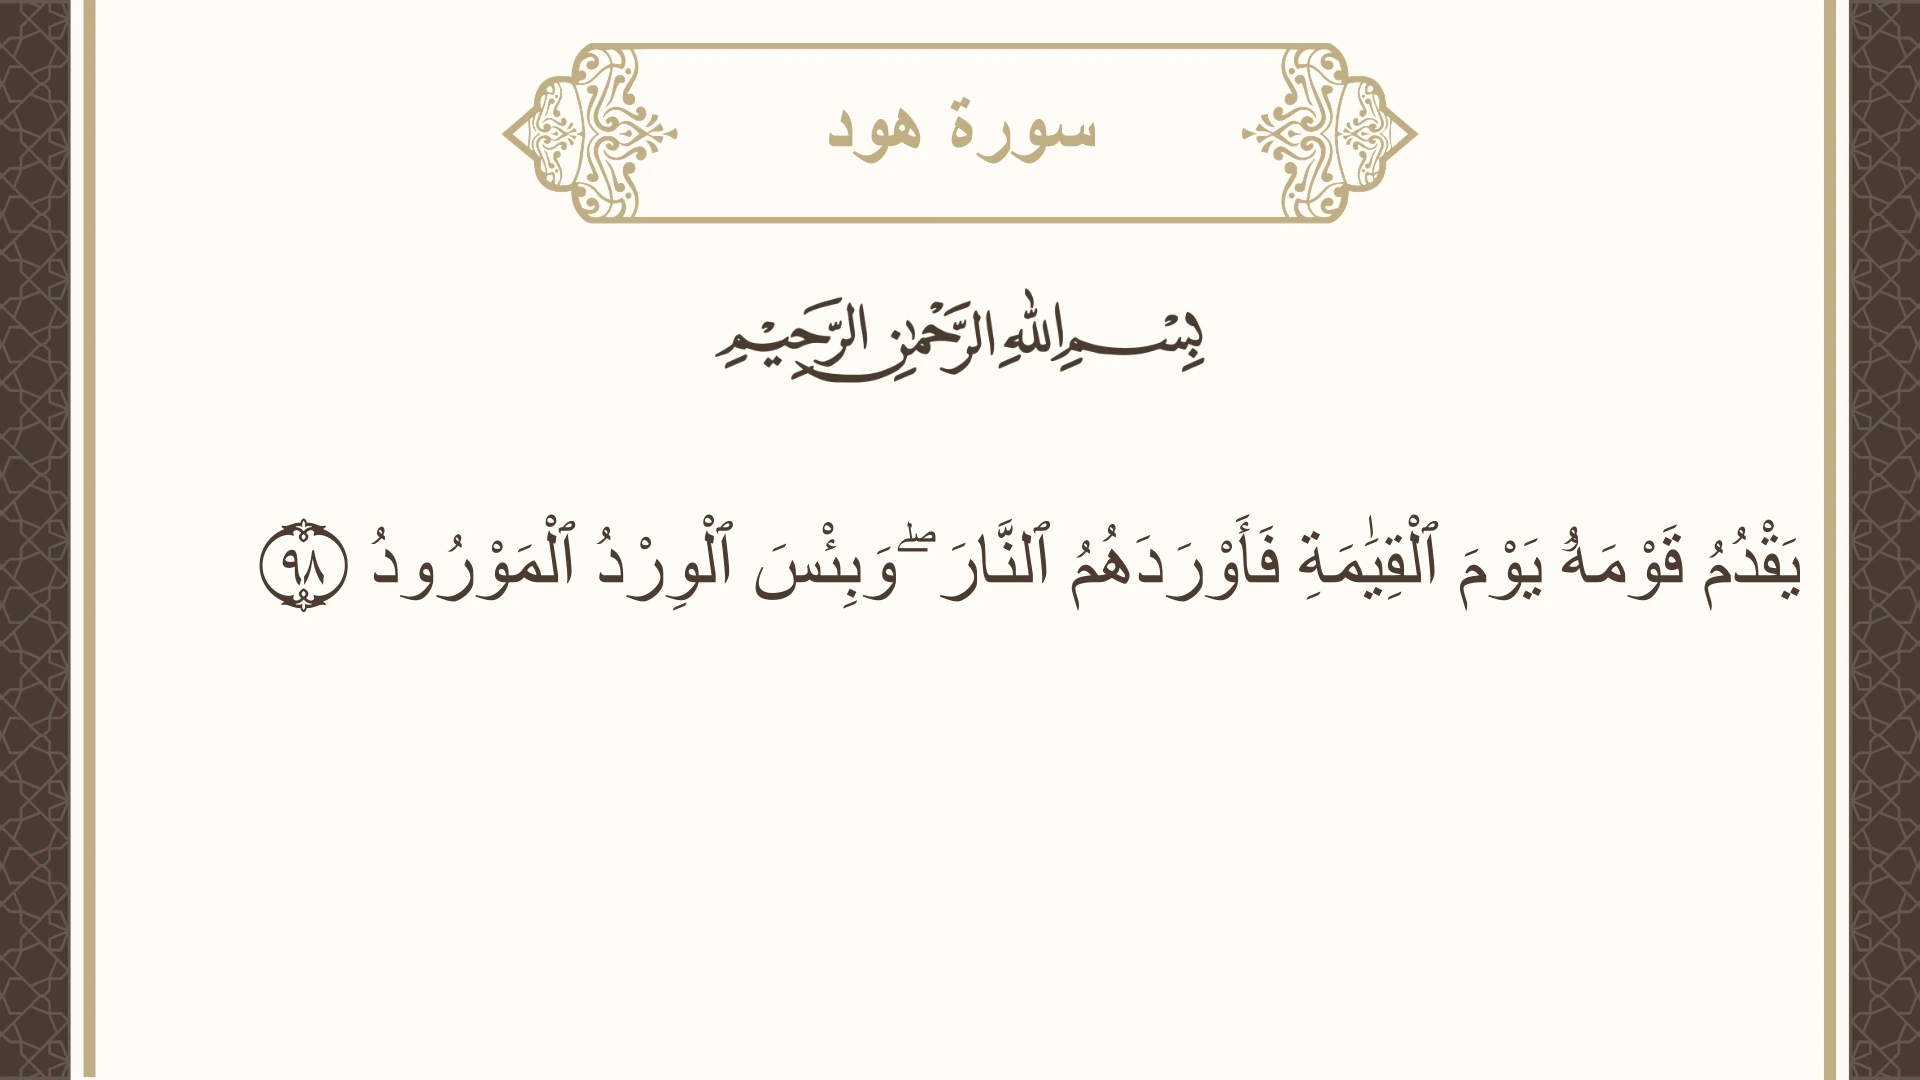 سورة هود
بِسْمِ اللهِ الرَّحْمٰنِ الرَّحِيْمِ
يَقْدُمُ قَوْمَهُۥ يَوْمَ ٱلْقِيَٰمَةِ فَأَوْرَدَهُمُ ٱلنَّارَ ۖ وَبِئْسَ ٱلْوِرْدُ ٱلْمَوْرُودُ ٩٨